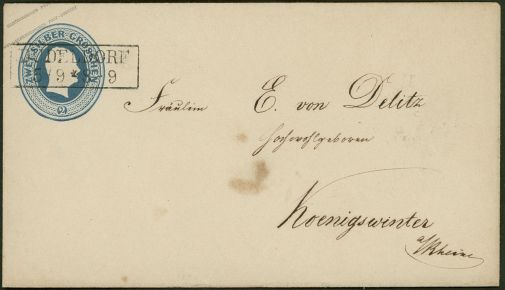 ZWEI SILBER GROSCHEN
2
Fräulein E. von Delitz
Hochwohlgeboren
Koenigswinter
a/Rhein